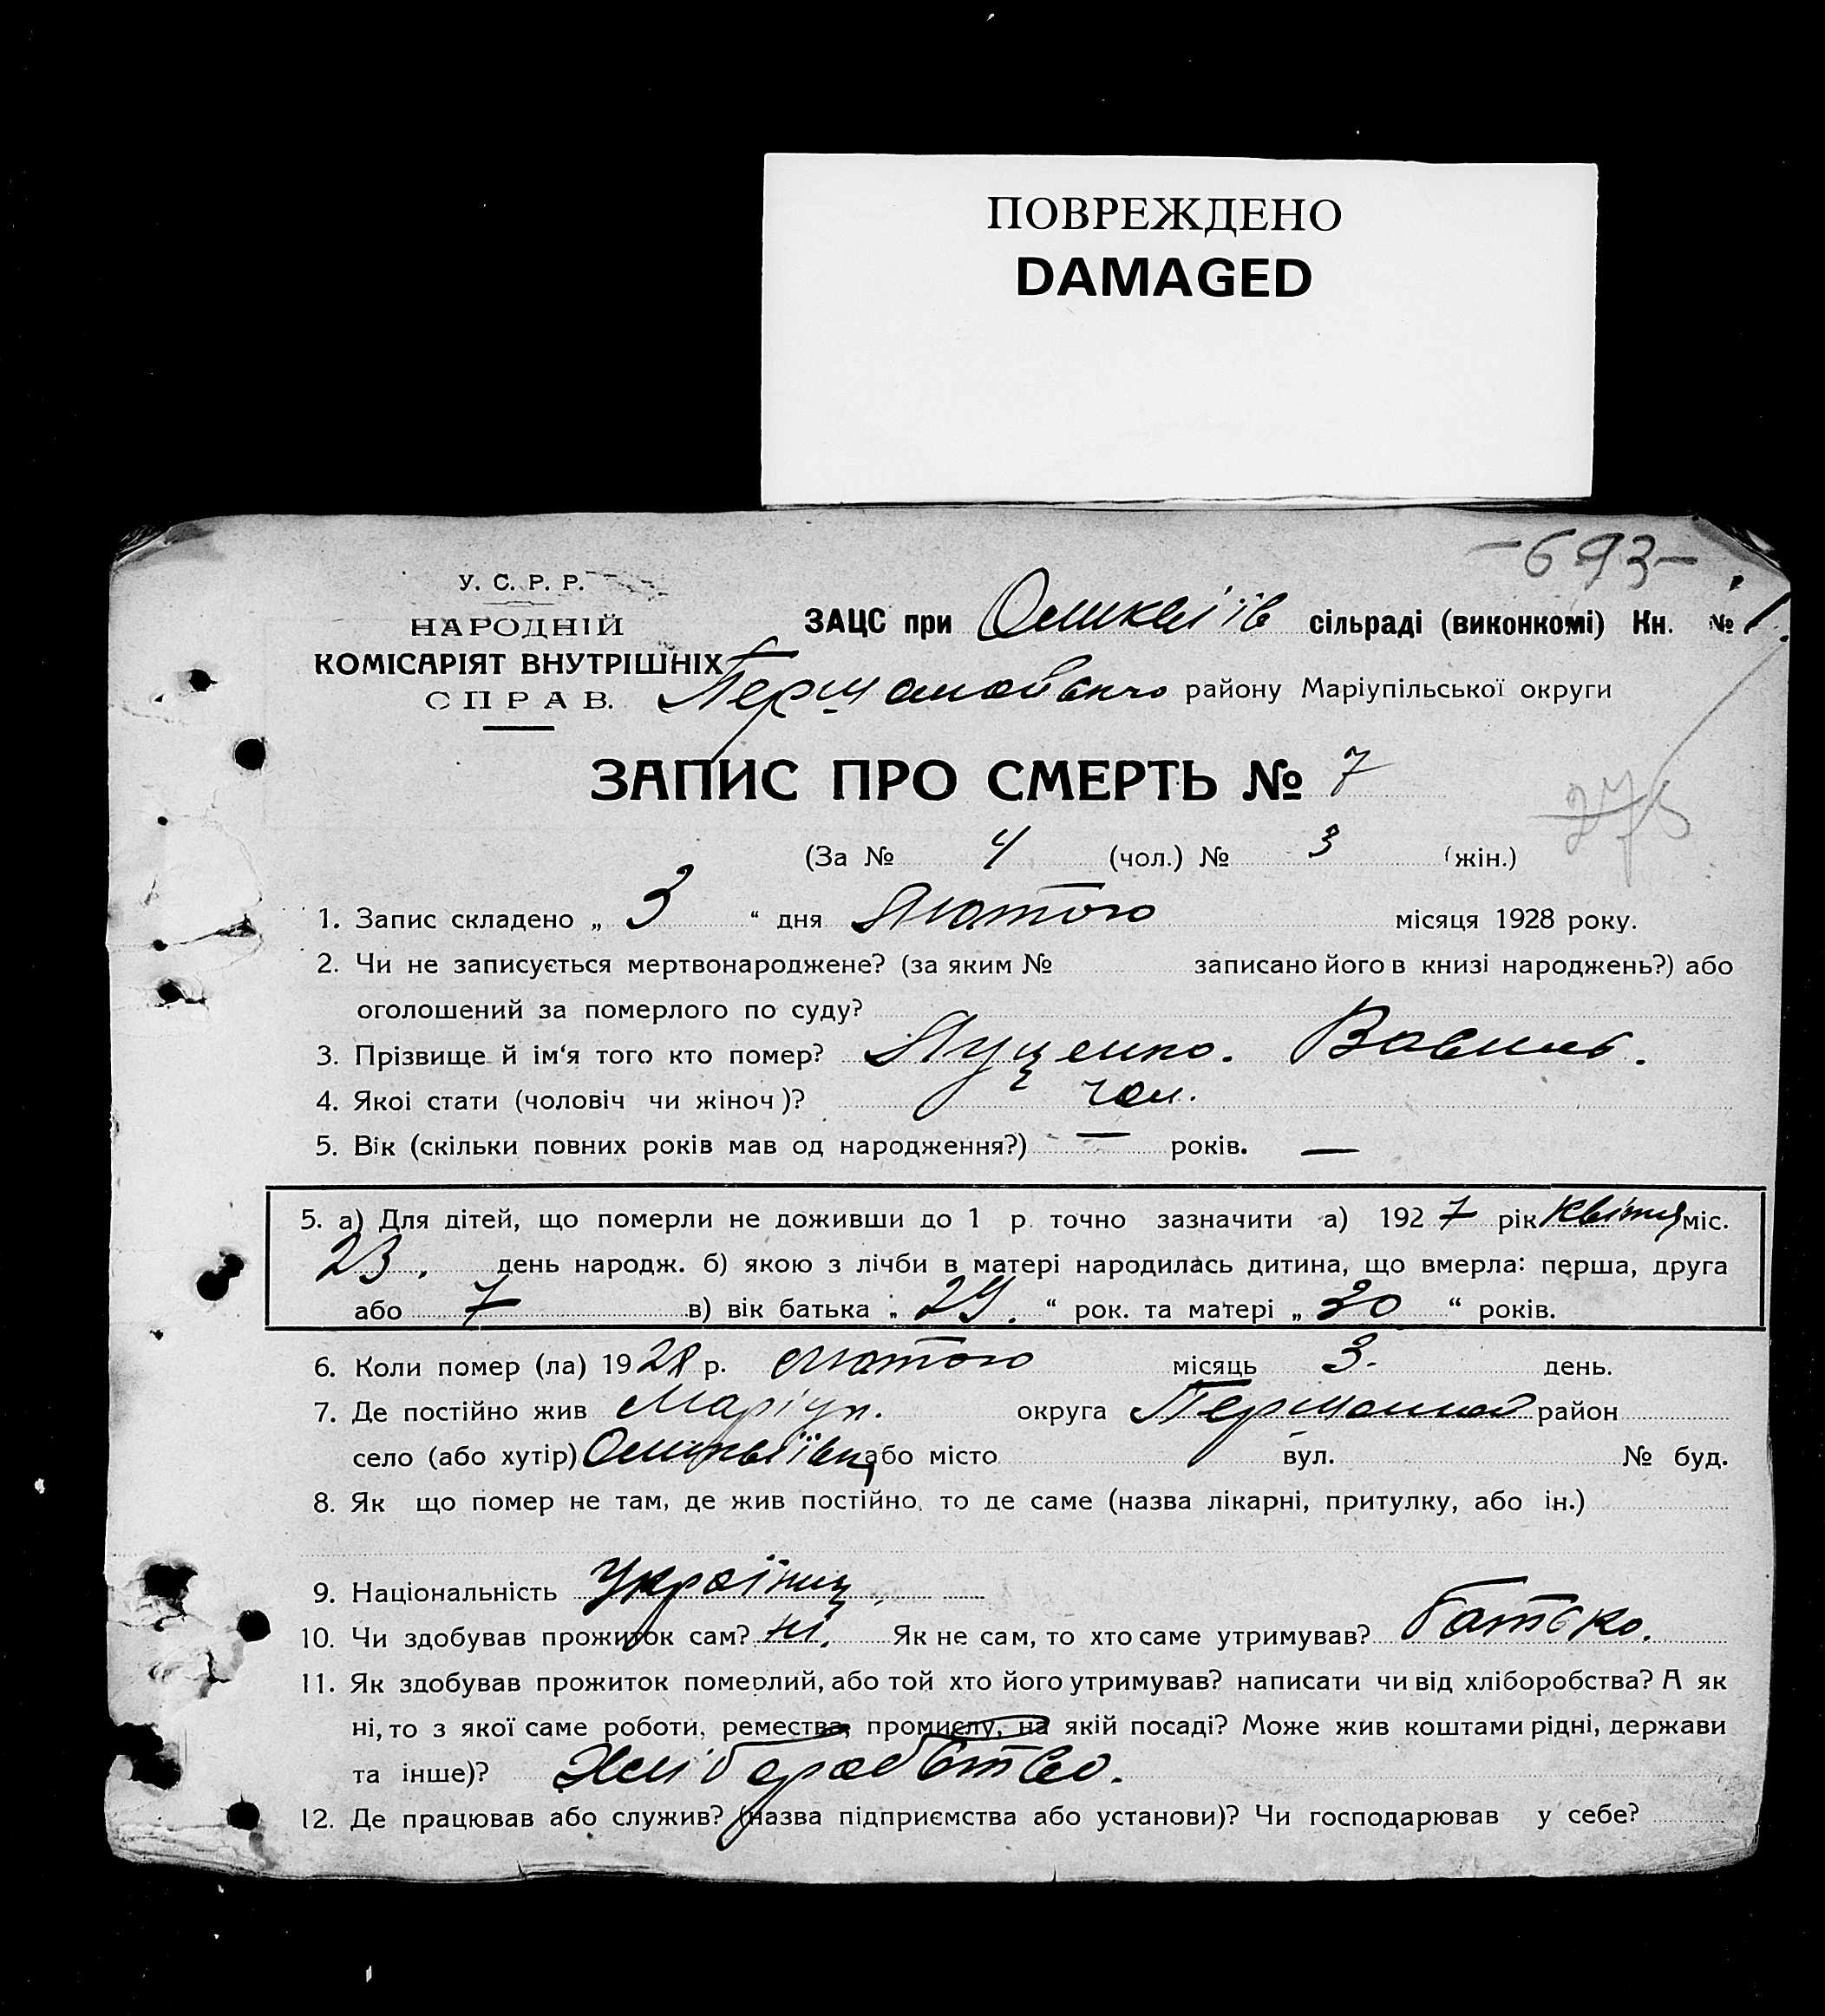 ПОВРЕЖДЕНО
DAMAGED
-693-
У. С. Р. Р.
НАРОДНІЙ
КОМІСАРІЯТ ВНУТРІШНІХ
СПРАВ.
ЗАЦС при сільраді (виконкомі) Кн. № 1.
району Маріупільської округи
ЗАПИС ПРО СМЕРТЬ № 7
275
(За № 4 (чол.) № 3 (жін.)
1. Запис складено „ 3 “ дня Лютого місяця 1928 року.
2. Чи не записується мертвонароджене? (за яким № записано його в книзі народжень?) або
оголошений за померлого по суду?
3. Прізвище й ім‘я того кто помер? Луценко. Василь.
4. Якоі стати (чоловіч чи жіноч)? чол.
5. Вік (скільки повних років мав од народження?) — років. —
5. а) Для дітей, що померли не доживши до 1 р. точно зазначити а) 1927 рік Квітня міс.
23. день народж. б) якою з лічби в матері народилась дитина, що вмерла: перша, друга
або 7 в) вік батька „ 29. “ рок. та матері „ 30 “ років.
6. Коли помер (ла) 1928 р. лютого місяць 3. день.
7. Де постійно жив Маріуп. округа район
село (або хутір) або місто вул. № буд.
8. Як що помер не там, де жив постійно, то де саме (назва лікарні, притулку, або ін.)
9. Національність Українец
10. Чи здобував прожиток сам? ні. Як не сам, то хто саме утримував? батько.
11. Як здобував прожиток померлий, або той хто його утримував? написати чи від хліборобства? А як
ні, то з якої саме роботи, ремества, промислу, на якій посаді? Може жив коштами рідні, держави
та інше)? Хліборобство.
12. Де працював або служив? (назва підприємства або установи)? Чи господарював у себе?